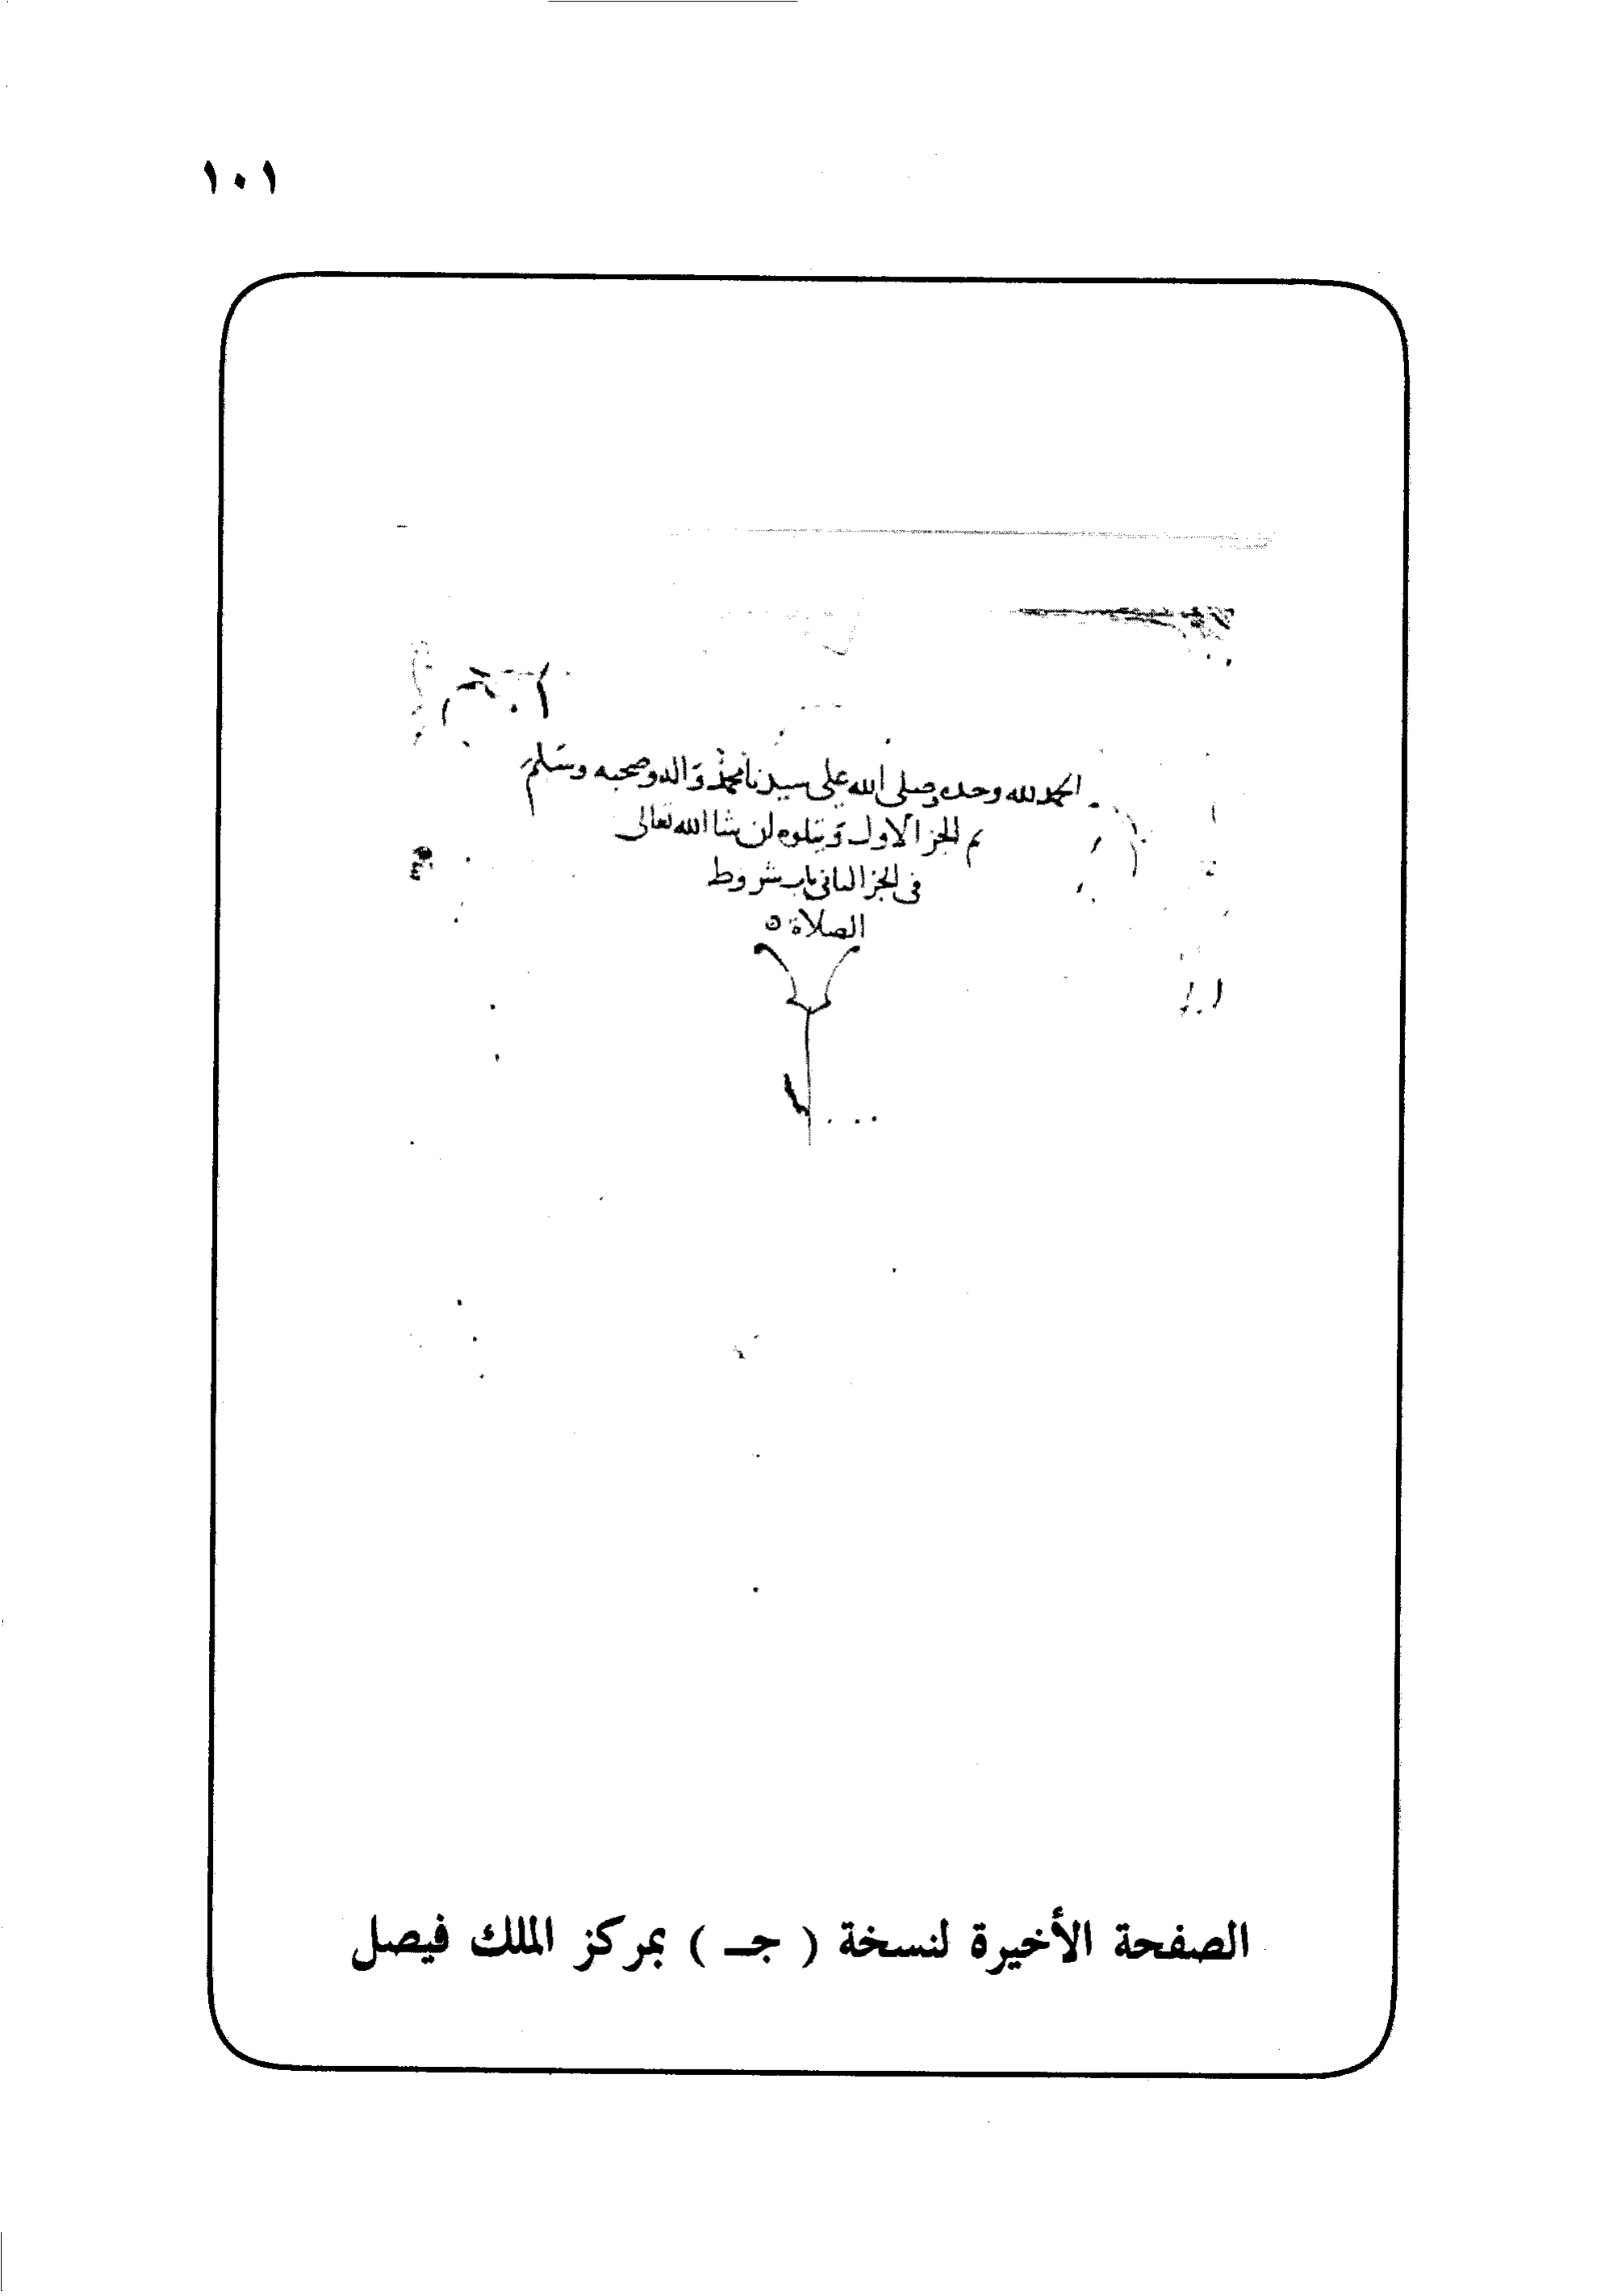 ١٠١
الحمد لله وحده وصلى الله على سيدنا محمد وآله وصحبه وسلم
تم الجز الاول ويتلوه ان شا الله تعالى
فى الجز الثانى باب شروط
الصلاة
الصفحة الأخيرة لنسخة ( جـ ) بمركز الملك فيصل